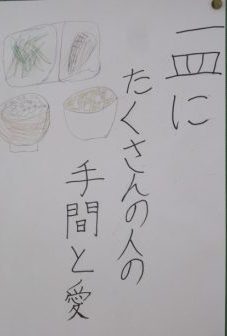 一皿に
たくさんの人の
手間と愛